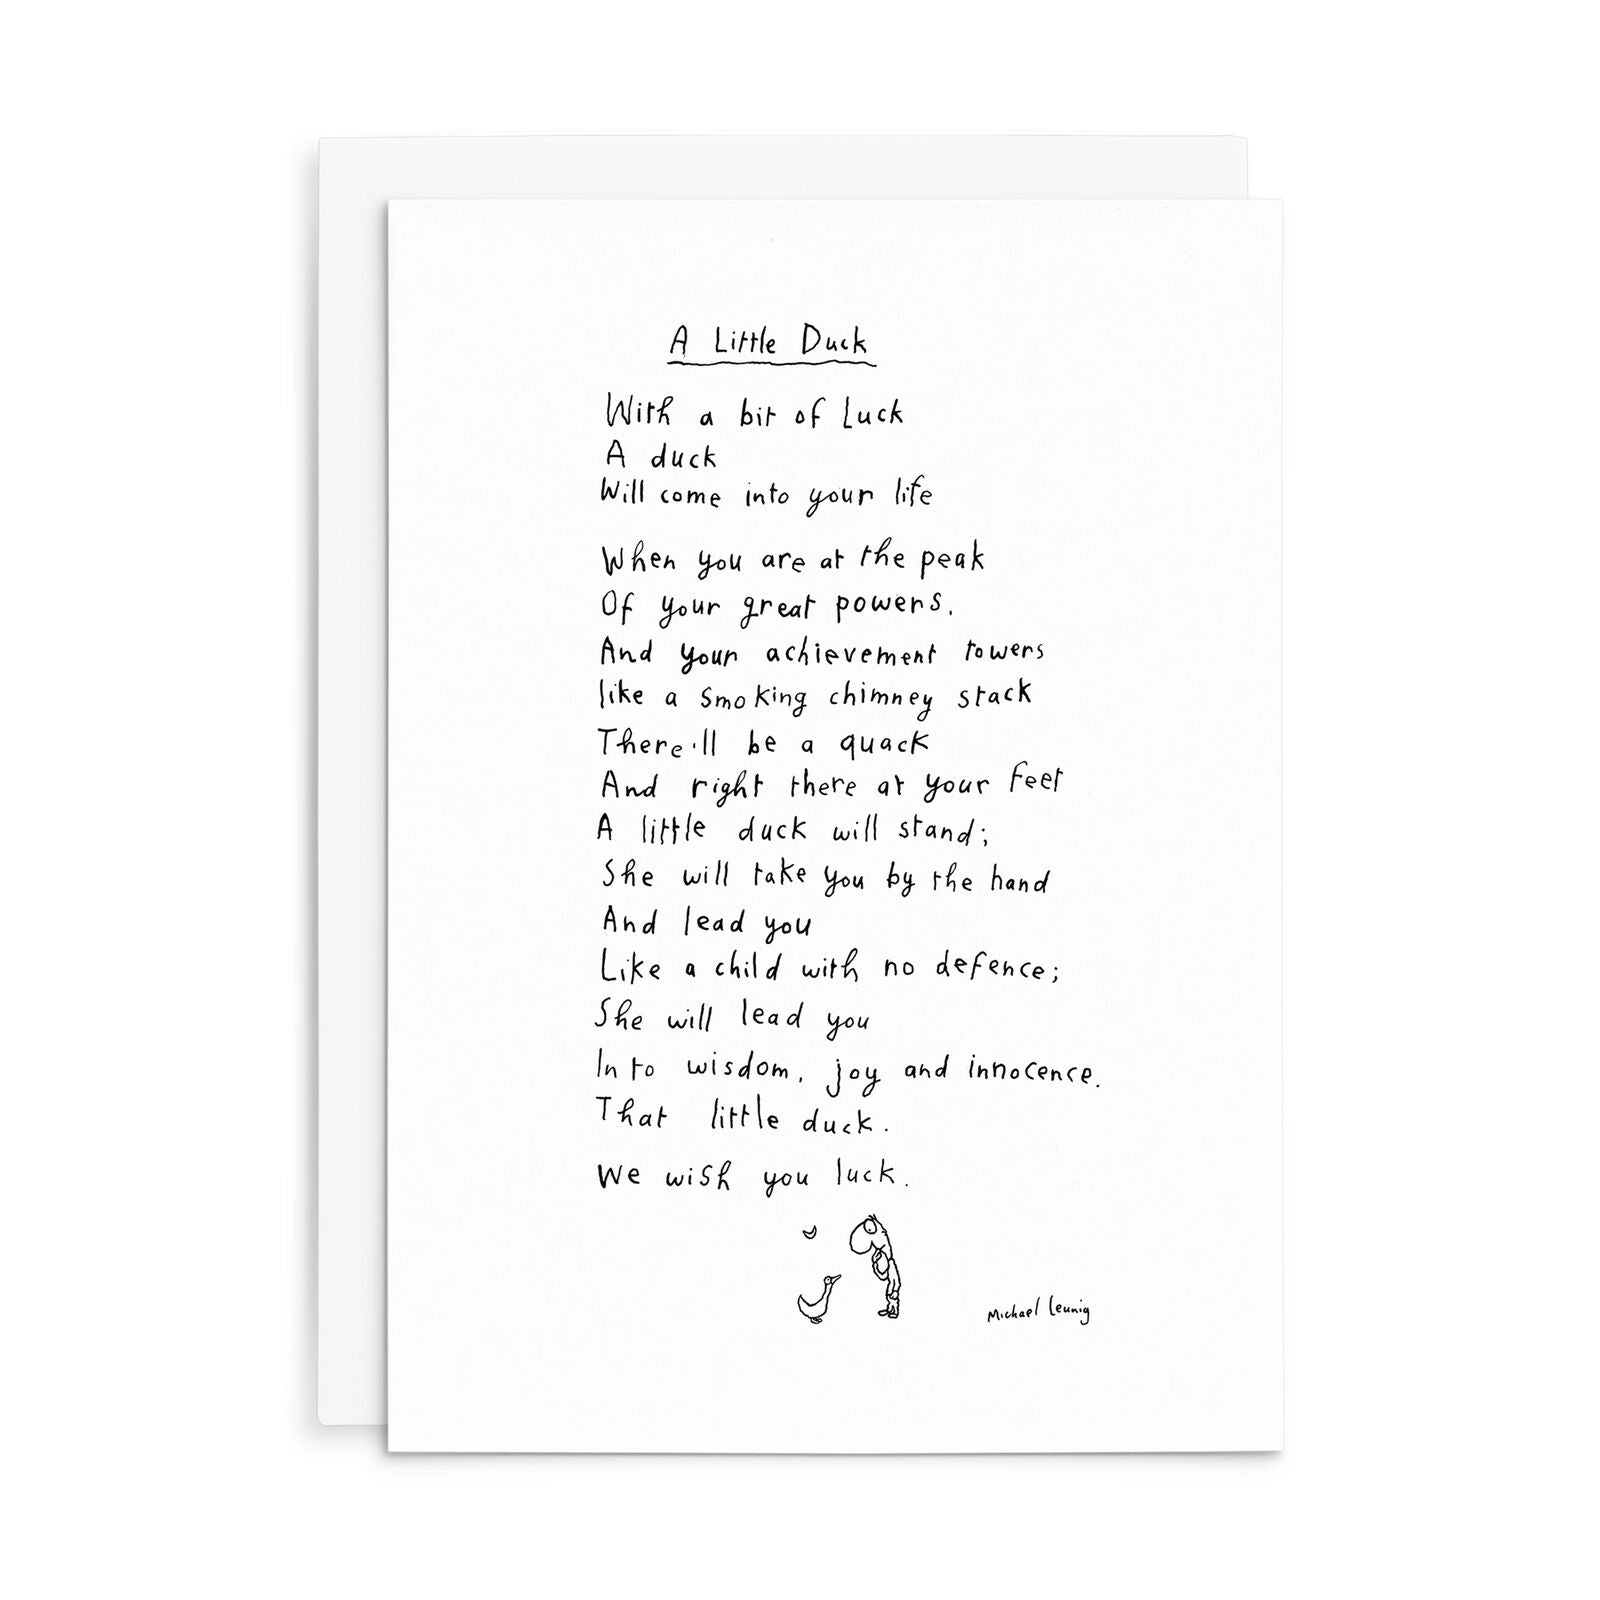 A Little Duck
With a bit of Luck
A duck
Will come into your life
When you are at the peak
Of your great powers.
And your achievement towers
like a smoking chimney stack
There'll be a quack
And right there at your feet
A little duck will stand;
She will take you by the hand
And lead you
Like a child with no defence;
She will lead you
Into wisdom, joy and innocence.
That little duck.
We wish you luck.
Michael Leunig